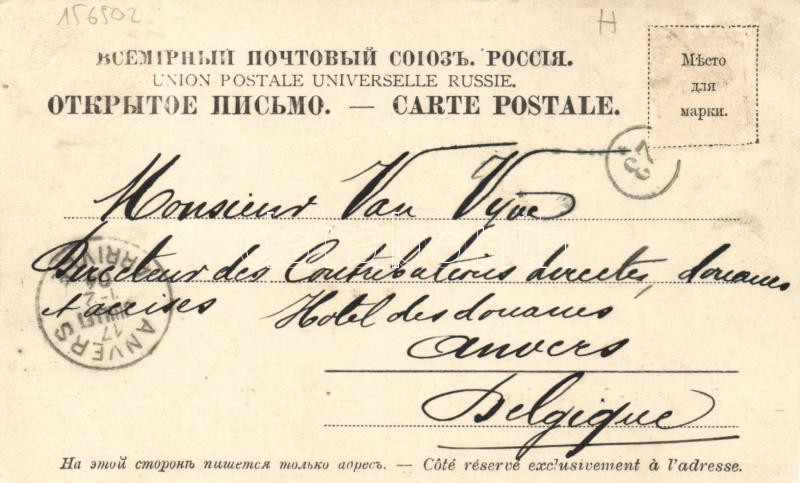 156502
H
ВСЕМІРНЫЙ ПОЧТОВЫЙ СОЮЗЪ. РОССІЯ.
UNION POSTALE UNIVERSELLE RUSSIE.
ОТКРЫТОЕ ПИСЬМО. — CARTE POSTALE.
Мѣсто
для
марки.
23
Monsieur Van Vyve
Directeur des Contributions directes, douanes
& accises Hotel des douanes
Anvers
Belgique
ANVERS
17
JUILLET
ARRIVÉE
На этой сторонѣ пишется только адресъ. — Côté réservé exclusivement à l'adresse.